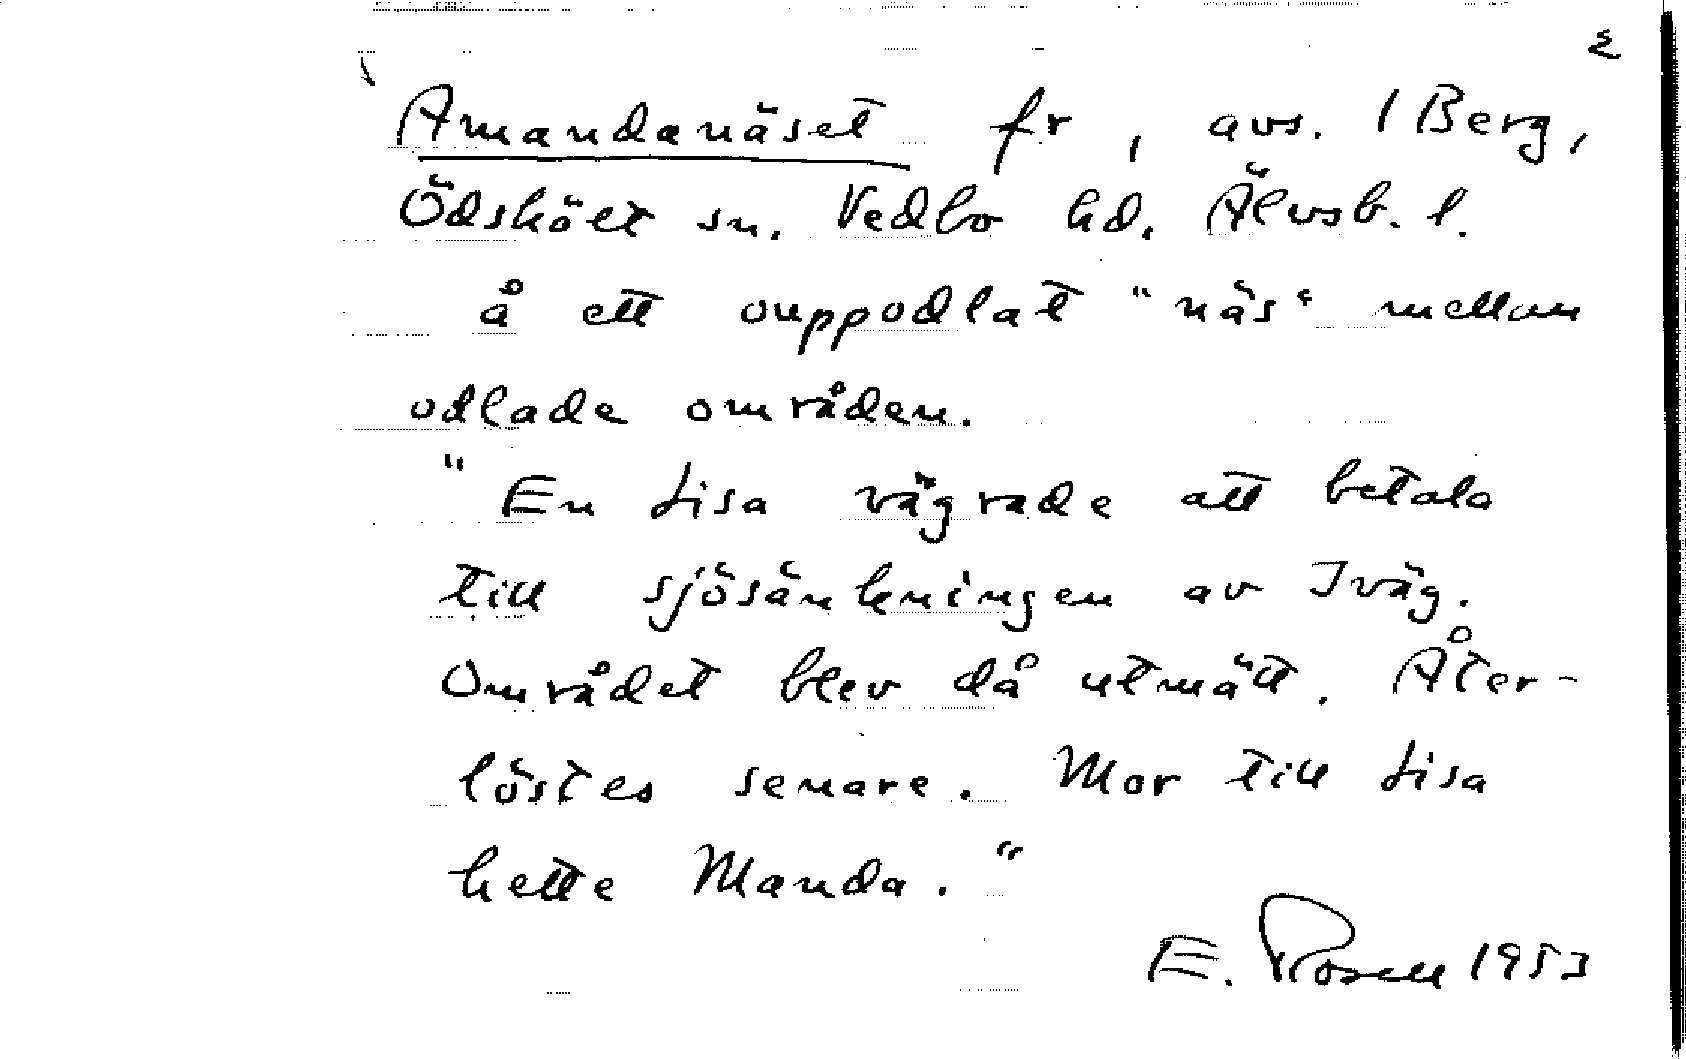 Amandanäset fr, avs. 1 Berg,
Ödskölt sn. Vedbo hd. Älvsb. l.
å ett ouppodlat "näs" mellan
odlade områden.
"En Lisa vägrade att betala
till sjösänkningen av Iväg.
Området blev då utmätt. Åter-
löstes senare. Mor till Lisa
hette Manda."
E. Rosell 1953